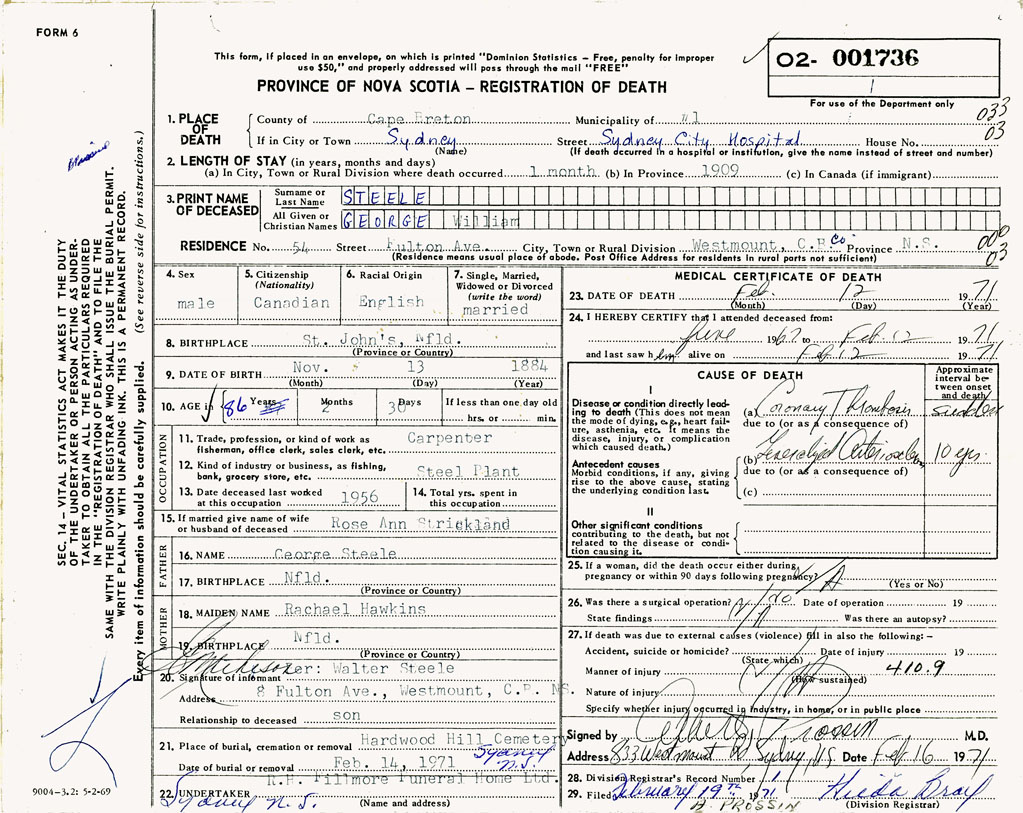 FORM 6
This form, if placed in an envelope, on which is printed "Dominion Statistics – Free, penalty for improper
use $50," and properly addressed will pass through the mail "FREE"
02- 001736
1
PROVINCE OF NOVA SCOTIA – REGISTRATION OF DEATH
For use of the Department only
033
03
1. PLACE OF DEATH
County of Cape Breton Municipality of #1
If in City or Town Sydney Street Sydney City Hospital House No.
(Name) (If death occurred in a hospital or institution, give the name instead of street and number)
2. LENGTH OF STAY (in years, months and days)
(a) In City, Town or Rural Division where death occurred 1 month (b) In Province 1909 (c) In Canada (if immigrant)
3. PRINT NAME OF DECEASED
Surname or Last Name STEELE
All Given or Christian Names GEORGE William
RESIDENCE No. 54 Street Fulton Ave. City, Town or Rural Division Westmount, C.B. Co Province N.S.
(Residence means usual place of abode. Post Office Address for residents in rural parts not sufficient)
000
03
4. Sex male
5. Citizenship (Nationality) Canadian
6. Racial Origin English
7. Single, Married, Widowed or Divorced (write the word) married
8. BIRTHPLACE St. John's, Nfld.
(Province or Country)
9. DATE OF BIRTH Nov. 13 1884
(Month) (Day) (Year)
10. AGE in 86 Years 2 Months 30 Days If less than one day old hrs. or min.
OCCUPATION
11. Trade, profession, or kind of work as fisherman, office clerk, sales clerk, etc. Carpenter
12. Kind of industry or business, as fishing, bank, grocery store, etc. Steel Plant
13. Date deceased last worked at this occupation 1956
14. Total yrs. spent in this occupation
15. If married give name of wife or husband of deceased Rose Ann Strickland
FATHER
16. NAME George Steele
17. BIRTHPLACE Nfld.
(Province or Country)
MOTHER
18. MAIDEN NAME Rachael Hawkins
19. BIRTHPLACE Nfld.
(Province or Country)
20. Signature of informant er: Walter Steele
Address 8 Fulton Ave., Westmount, C.B. NS.
Relationship to deceased son
21. Place of burial, cremation or removal Hardwood Hill Cemetery
Sydney N.S.
Date of burial or removal Feb. 14, 1971
R.H. Fillmore Funeral Home Ltd.
22. UNDERTAKER Sydney N.S.
(Name and address)
MEDICAL CERTIFICATE OF DEATH
23. DATE OF DEATH Feb. 12 1971
(Month) (Day) (Year)
24. I HEREBY CERTIFY that I attended deceased from:
June 1967 to Feb 12 1971
and last saw him alive on Feb 12 1971
CAUSE OF DEATH
Approximate interval between onset and death
I
Disease or condition directly leading to death (This does not mean the mode of dying, e.g., heart failure, asthenia, etc. It means the disease, injury, or complication which caused death.)
(a) Coronary Thrombosis sudden
due to (or as a consequence of)
Antecedent causes
Morbid conditions, if any, giving rise to the above cause, stating the underlying condition last.
(b) Generalized 10 yrs.
due to (or as a consequence of)
(c)
II
Other significant conditions contributing to the death, but not related to the disease or condition causing it.
25. If a woman, did the death occur either during pregnancy or within 90 days following pregnancy? N/A
(Yes or No)
26. Was there a surgical operation? No Date of operation 19
State findings N/A Was there an autopsy?
27. If death was due to external causes (violence) fill in also the following: –
Accident, suicide or homicide? Date of injury 19
(State which)
Manner of injury 410.9
(How sustained)
Nature of injury
Specify whether injury occurred in industry, in home, or in public place
Signed by Albert Prossin M.D.
Address 833 Westmount Rd Sydney N.S. Date Feb 16 1971
28. Division Registrar's Record Number 1
29. Filed February 19th 1971 Hilda Bray
A. PROSSIN (Division Registrar)
SEC. 14 – VITAL STATISTICS ACT MAKES IT THE DUTY
OF THE UNDERTAKER OR PERSON ACTING AS UNDERTAKER TO OBTAIN ALL THE PARTICULARS REQUIRED
IN THE "REGISTRATION OF DEATH" AND TO FILE THE
SAME WITH THE DIVISION REGISTRAR WHO SHALL ISSUE THE BURIAL PERMIT.
WRITE PLAINLY WITH UNFADING INK. THIS IS A PERMANENT RECORD.
Every item of information should be carefully supplied. (See reverse side for instructions.)
9004-3.2: 5-2-69